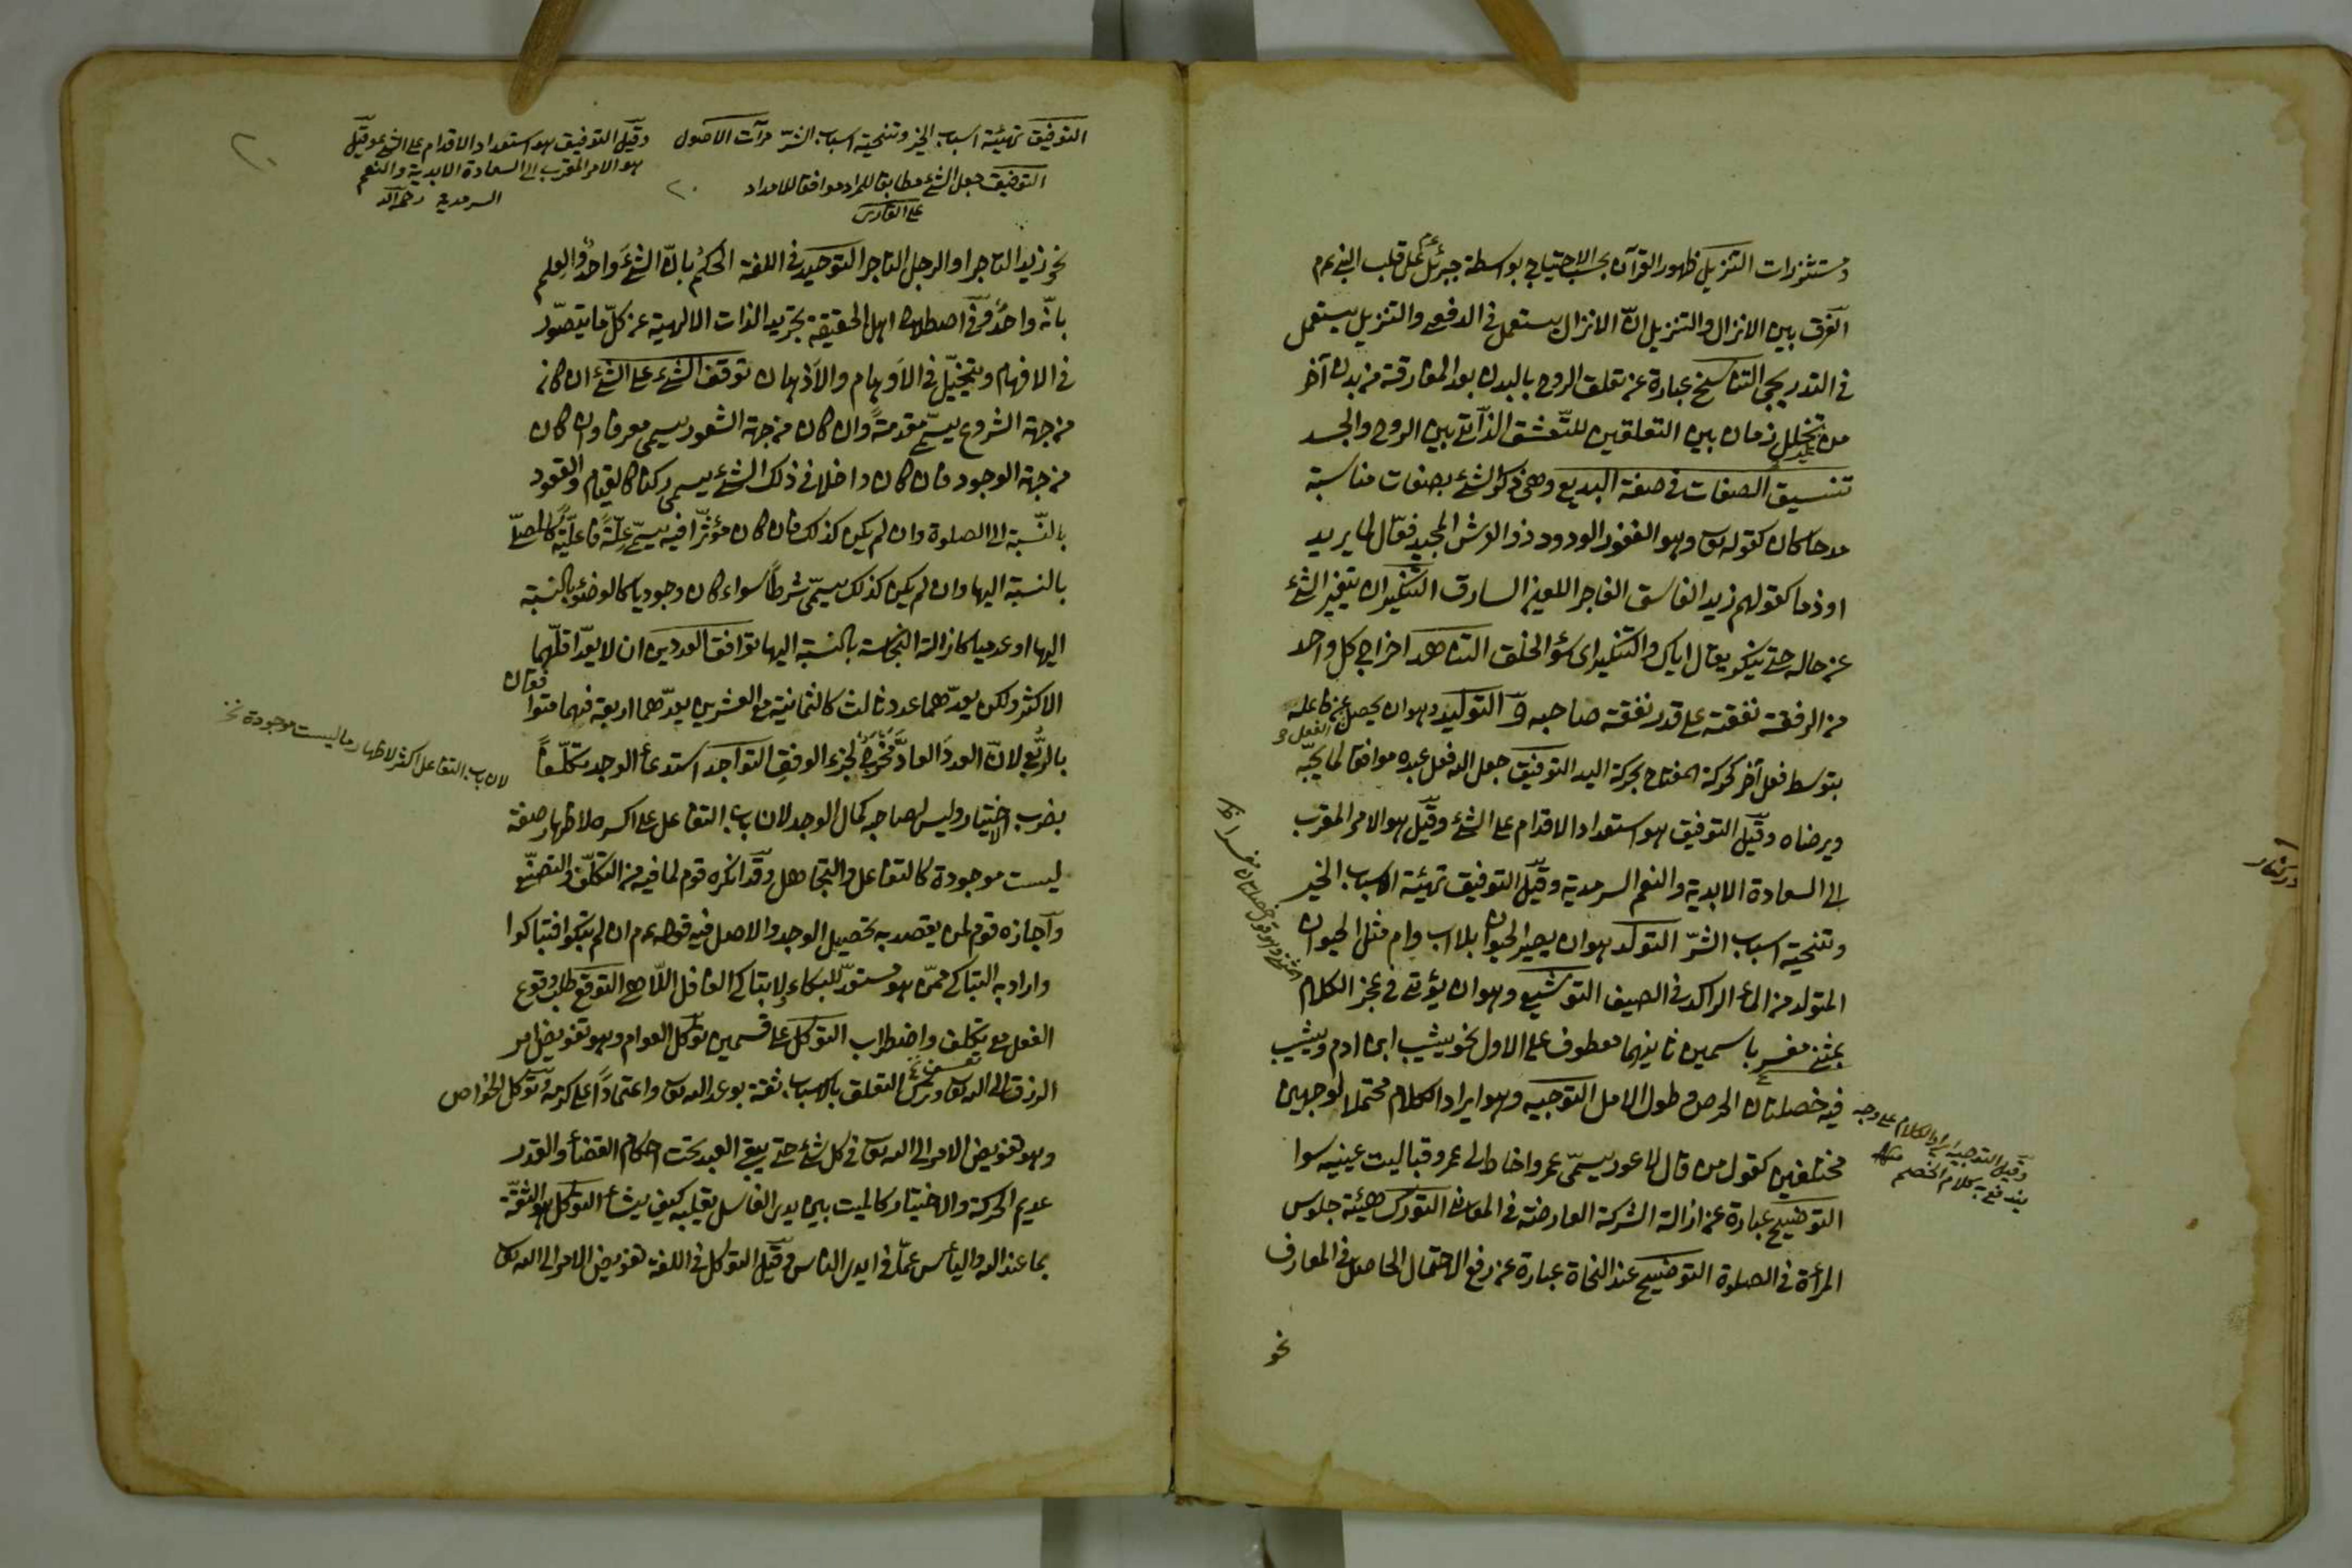 مستشزرات التنزيل ظهور القرآن بحسب الاحتياج بواسطة جبرئيل عم على قلب النبي عم
الفرق بين الانزال والتنزيل ان الانزال يستعمل في الدفعي والتنزيل يستعمل
في التدريجي التناسخ عبارة عن تعلق الروح بالبدن بعد المفارقة من بدن آخر
من تخلل زمان بين التعلقين للتعشق الذاتي بين الروح والجسد
تنسيق الصفات في صنعة البديع وهي ذكر الشئ بصفات مناسبة
مدحا كان كقوله تع وهو الغفور الودود ذو العرش المجيد فعّال لما يريد
او ذما كقولهم زيد الفاسق الفاجر اللعين السارق التنكير ان يتغير الشئ
عن حاله حتى ينكر يقال اياك والتنكير اى سؤ الخلق التناهد اخراج كل واحد
من الرفقة نفقة على قدر نفقة صاحبه و التوليد وهو ان يحصل الفعل عن فاعله
بتوسط فعل آخر كحركة المفتاح بحركة اليد التوفيق جعل الله فعل عبده موافقا لما يحبّه
ويرضاه وقيل التوفيق هو استعداد الاقدام على الشئ وقيل هو الامر المقرب
الى السعادة الابدية والنعم السرمدية وقيل التوفيق تهيئة اسباب الخير
وتنحية اسباب الشرّ التولد هو ان يصير الحيوان بلا اب وام مثل الحيوان
المتولد من الماء الراكد في الصيف التوشيع وهو ان يؤتى في عجز الكلام
بمثنى مفسر باسمين ثانيهما معطوف على الاول نحو يشيب ابن ادم ويشيب
فيه خصلتان الحرص وطول الامل التوجيه وهو ايراد الكلام محتملا لوجهين
مختلفين كقول من قال لاعور يسمّى عمروا خاط لى عمرو قبا ليت عينيه سوا
التوضيح عبارة عن ازالة الشركة العارضة في المعارف التورك هيئة جلوس
المرأة في الصلوة التوضيح عند النحاة عبارة عن رفع الاحتمال الحاصل في المعارف
نحو
وقيل التوجيه ايراد الكلام على وجه
يندفع به كلام الخصم
التوفيق تهيئة اسباب الخير وتنحية اسباب الشرّ مرآت الاصول
التوفيق جعل الشئ مطابقا للمراد موافقا للامداد
على القارى
وقيل التوفيق هو استعداد الاقدام على الشئ وقيل
هو الامر المقرب الى السعادة الابدية والنعم
السرمدية
نحو زيد التاجر او الرجل التاجر التوحيد في اللغة الحكم بانّ الشئ واحد والعلم
بانّه واحد وفي اصطلاح اهل الحقيقة تجريد الذات الالهية عن كلّ ما يتصوّر
في الافهام ويتخيّل في الاوهام والاذهان توقف الشئ على الشئ ان كان
من جهة الشروع يسمّى مقدمة وان كان من جهة الشعور يسمى معرفا وان كان
من جهة الوجود فان كان داخلا في ذلك الشئ يسمى ركنا كالقيام والقعود
بالنّسبة الى الصلوة وان لم يكن كذلك فان كان مؤثّرا فيه يسمّى علّة فاعليّة كالمصلّي
بالنسبة اليها وان لم يكن كذلك يسمّى شرطا سواء كان وجوديا كالوضئ بالنسبة
اليها او عدميا كازالة النجاسة بالنسبة اليها توافق العددين ان لا يعدّ اقلّهما
الاكثر ولكن يعدّهما عدد ثالث كالثمانية مع العشرين يعدّهما اربعة فهما متوافقان
بالرّبع لانّ العدد العادّ مخرج لجزء الوفق التواجد استدعأ الوجد تكلّفا
بضرب اختيار وليس لصاحبه كمال الوجد لان باب التفاعل على اكثره لاظهار صفة
ليست موجودة كالتفاعل والتجاهل وقد انكره قوم لما فيه من التكلّف والتصنّع
واجازه قوم لمن يقصد به تحصيل الوجد والاصل فيه قوله عم ان لم تبكوا فتباكوا
واراد به التباكى ممّن هو مستعدّ للبكاء لا تباكى الغافل اللّاهى التوقع طلب وقوع
الفعل مع تكلف واضطراب التوكل على قسمين توكل العوام وهو تفويض امر
الرزق الى الله تع وترك التعلق بالاسباب ثقة بوعد الله تع واعتمادا على كرمه وتوكل الخواص
وهو تفويض الامر الى الله تع في كل شئ حتى يبقى العبد تحت احكام القضأ والقدر
عديم الحركة والاختيار كالميت بين يدى الغاسل يقلبه كيف يشأ التوكل هو الثقة
بما عند الله واليأس عمّا في ايدى الناس وقيل التوكل في اللغة تفويض الامر الى الله تع
لان باب التفاعل اكثر لاظهار ما ليست موجودة نحو